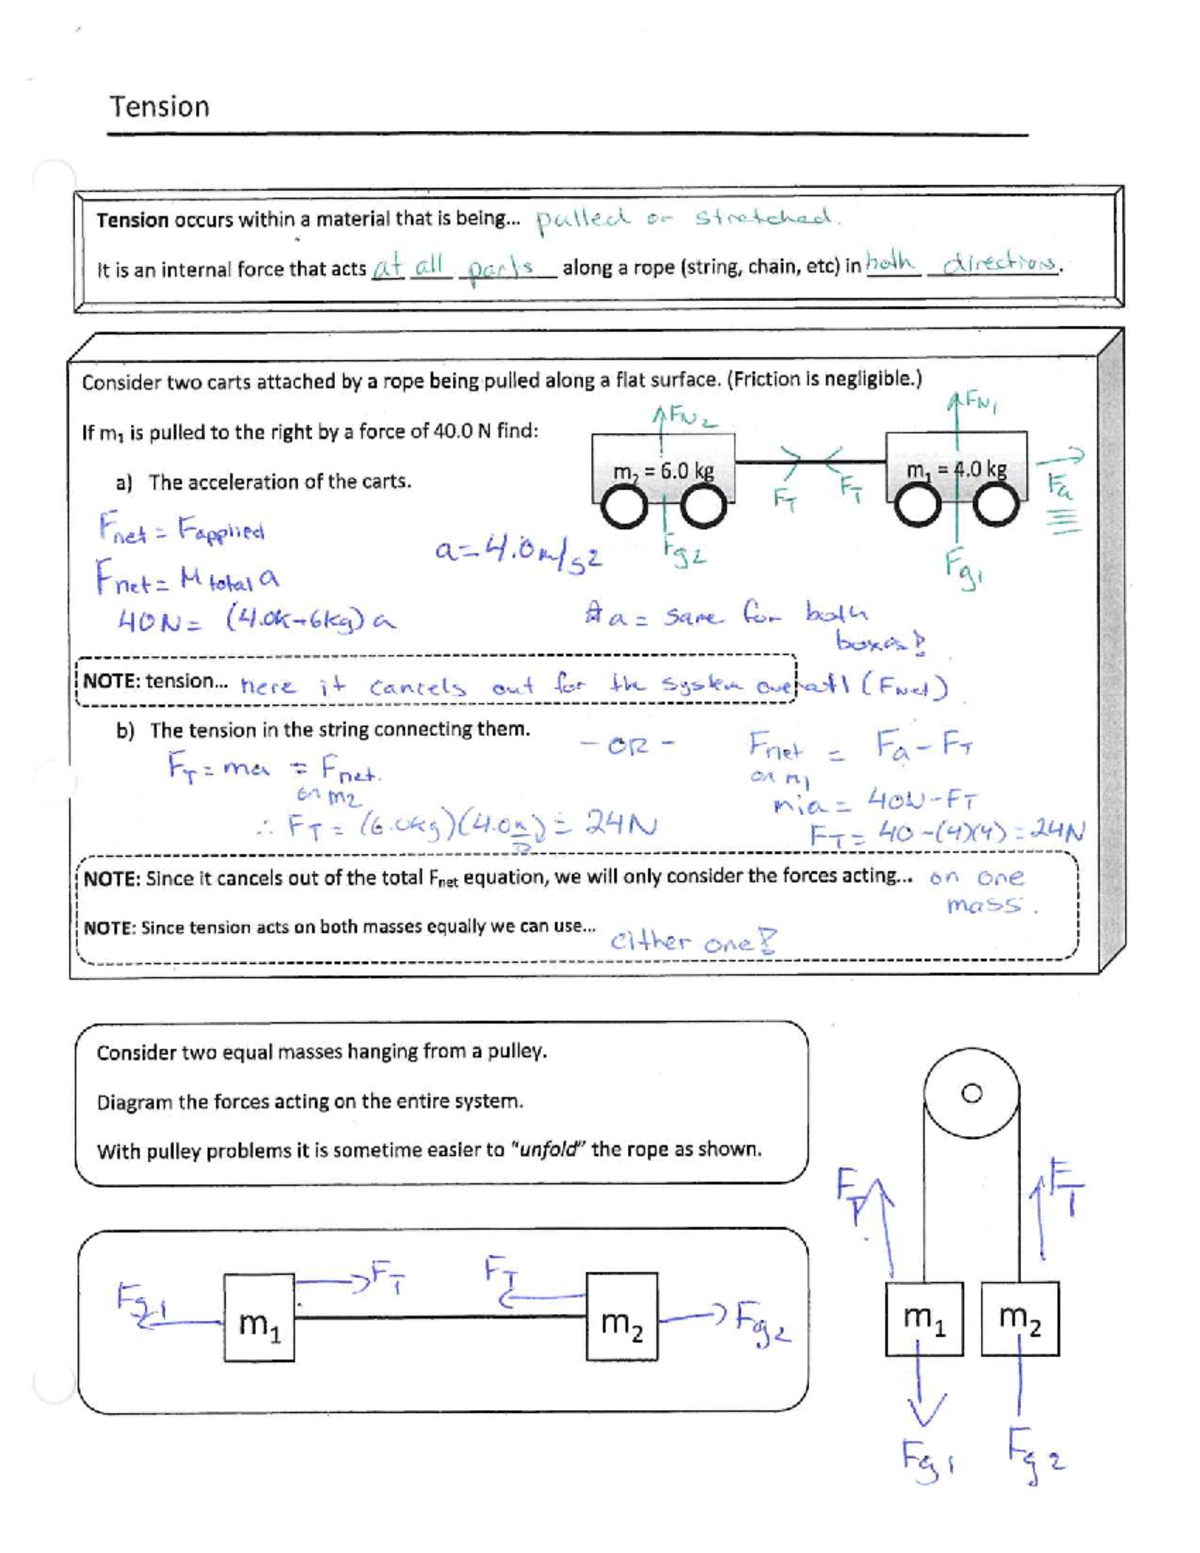 Tension
Tension occurs within a material that is being... pulled or stretched.
It is an internal force that acts at all parts along a rope (string, chain, etc) in both directions.
Consider two carts attached by a rope being pulled along a flat surface. (Friction is negligible.)
If m₁ is pulled to the right by a force of 40.0 N find:
FN2
FN1
m₂ = 6.0 kg
m₁ = 4.0 kg
FT
FT
Fa
Fg2
Fg1
a) The acceleration of the carts.
Fnet = Fapplied
Fnet = Mtotal a
40N = (4.0k+6kg) a
a = 4.0 m/s2
a = same for both
boxes!
NOTE: tension... here it cancels out for the system overall (Fnet)
b) The tension in the string connecting them.
FT = ma = Fnet.
on m2
∴ FT = (6.0kg)(4.0 ) = 24N
- OR -
Fnet = Fa - FT
on m1
m1a = 40N - FT
FT = 40 - (4)(4) = 24N
NOTE: Since it cancels out of the total Fnet equation, we will only consider the forces acting... on one
mass.
NOTE: Since tension acts on both masses equally we can use... either one!
Consider two equal masses hanging from a pulley.
Diagram the forces acting on the entire system.
With pulley problems it is sometime easier to "unfold" the rope as shown.
FT
FT
m₁
m₂
Fg1
Fg2
Fg1
m₁
FT
FT
m₂
Fg2